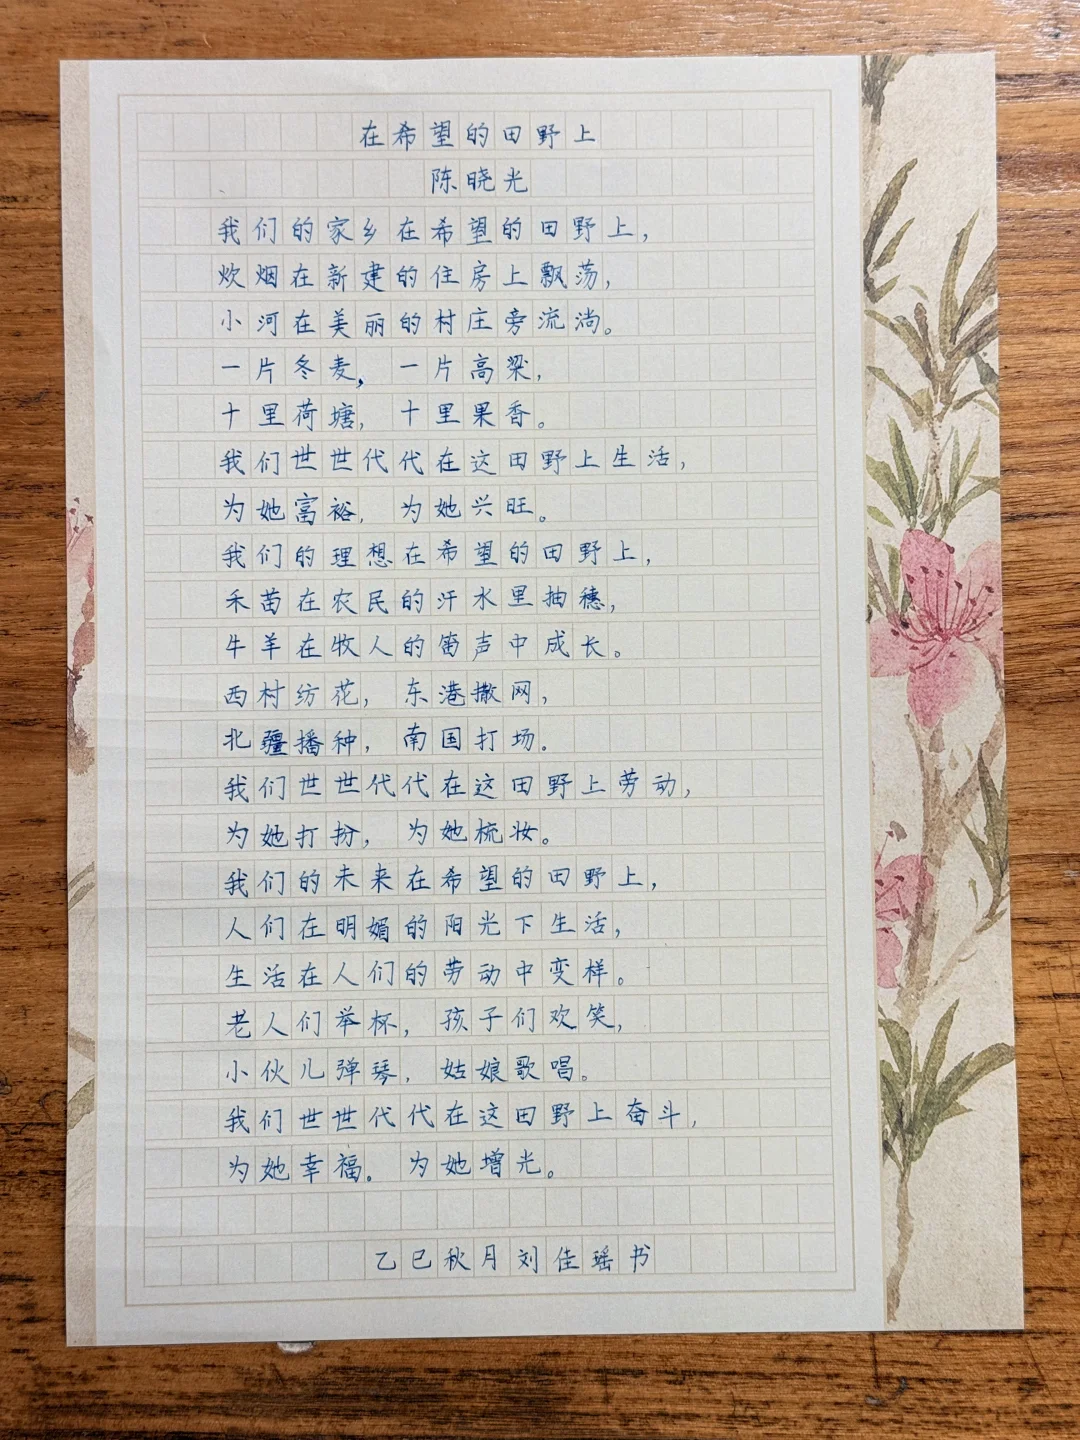 在希望的田野上
陈晓光
我们的家乡在希望的田野上，
炊烟在新建的住房上飘荡，
小河在美丽的村庄旁流淌。
一片冬麦，一片高粱，
十里荷塘，十里果香。
我们世世代代在这田野上生活，
为她富裕，为她兴旺。
我们的理想在希望的田野上，
禾苗在农民的汗水里抽穗，
牛羊在牧人的笛声中成长。
西村纺花，东港撒网，
北疆播种，南国打场。
我们世世代代在这田野上劳动，
为她打扮，为她梳妆。
我们的未来在希望的田野上，
人们在明媚的阳光下生活，
生活在人们的劳动中变样。
老人们举杯，孩子们欢笑，
小伙儿弹琴，姑娘歌唱。
我们世世代代在这田野上奋斗，
为她幸福。为她增光。
乙巳秋月刘佳瑶书